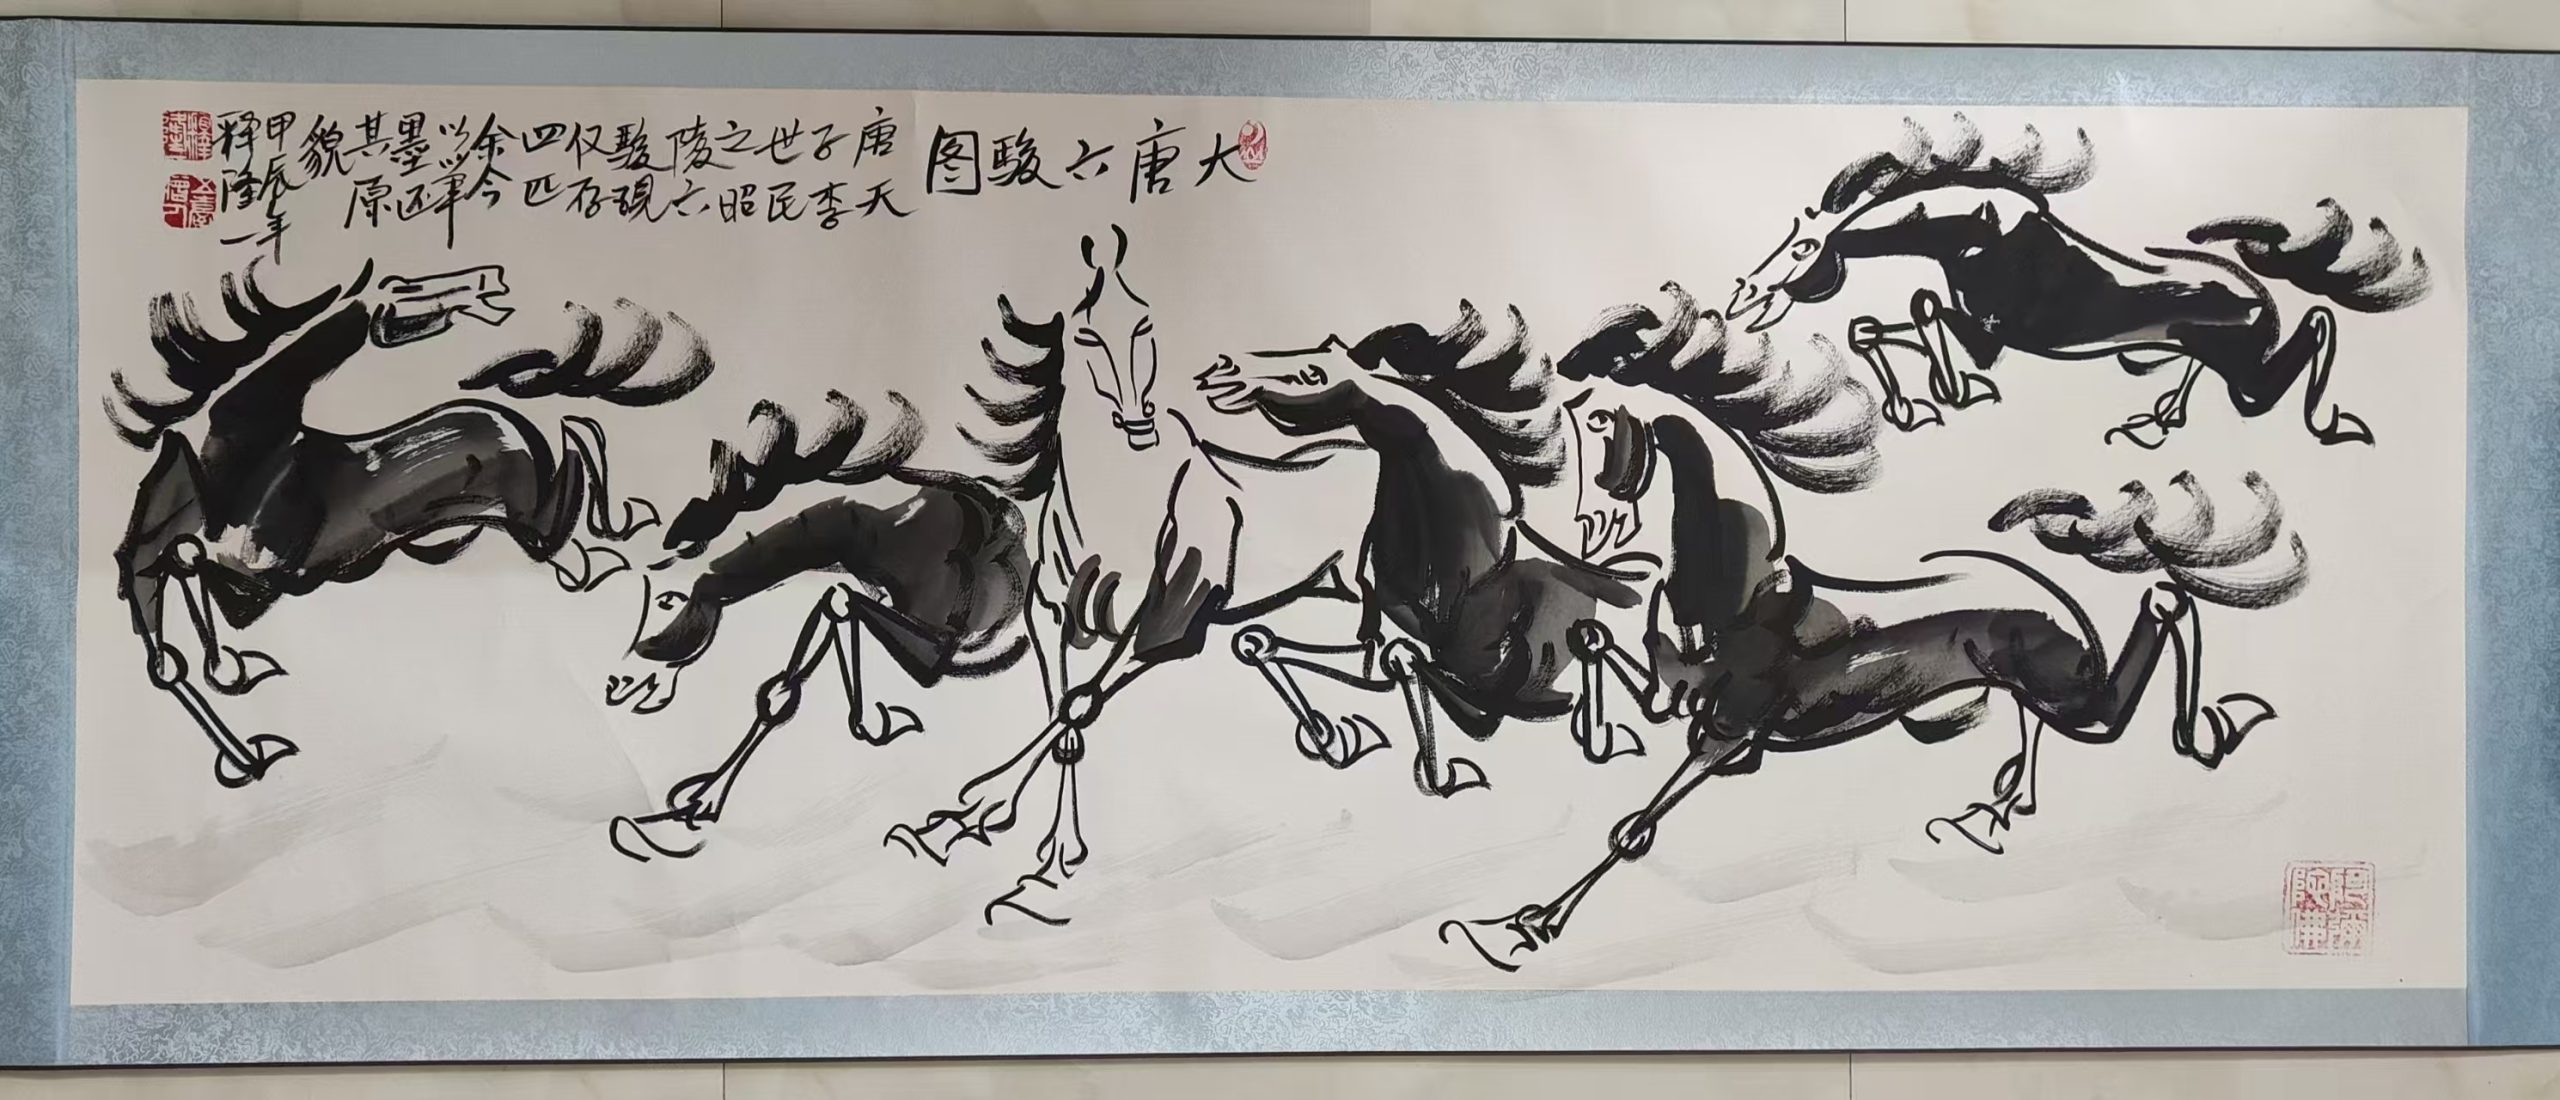 大唐六骏图
唐天
子李
世民
之昭
陵六
骏现
仅存
四匹
余今
以笔
墨还
其原
貌
甲辰年
释隆一
阿彌
陀佛